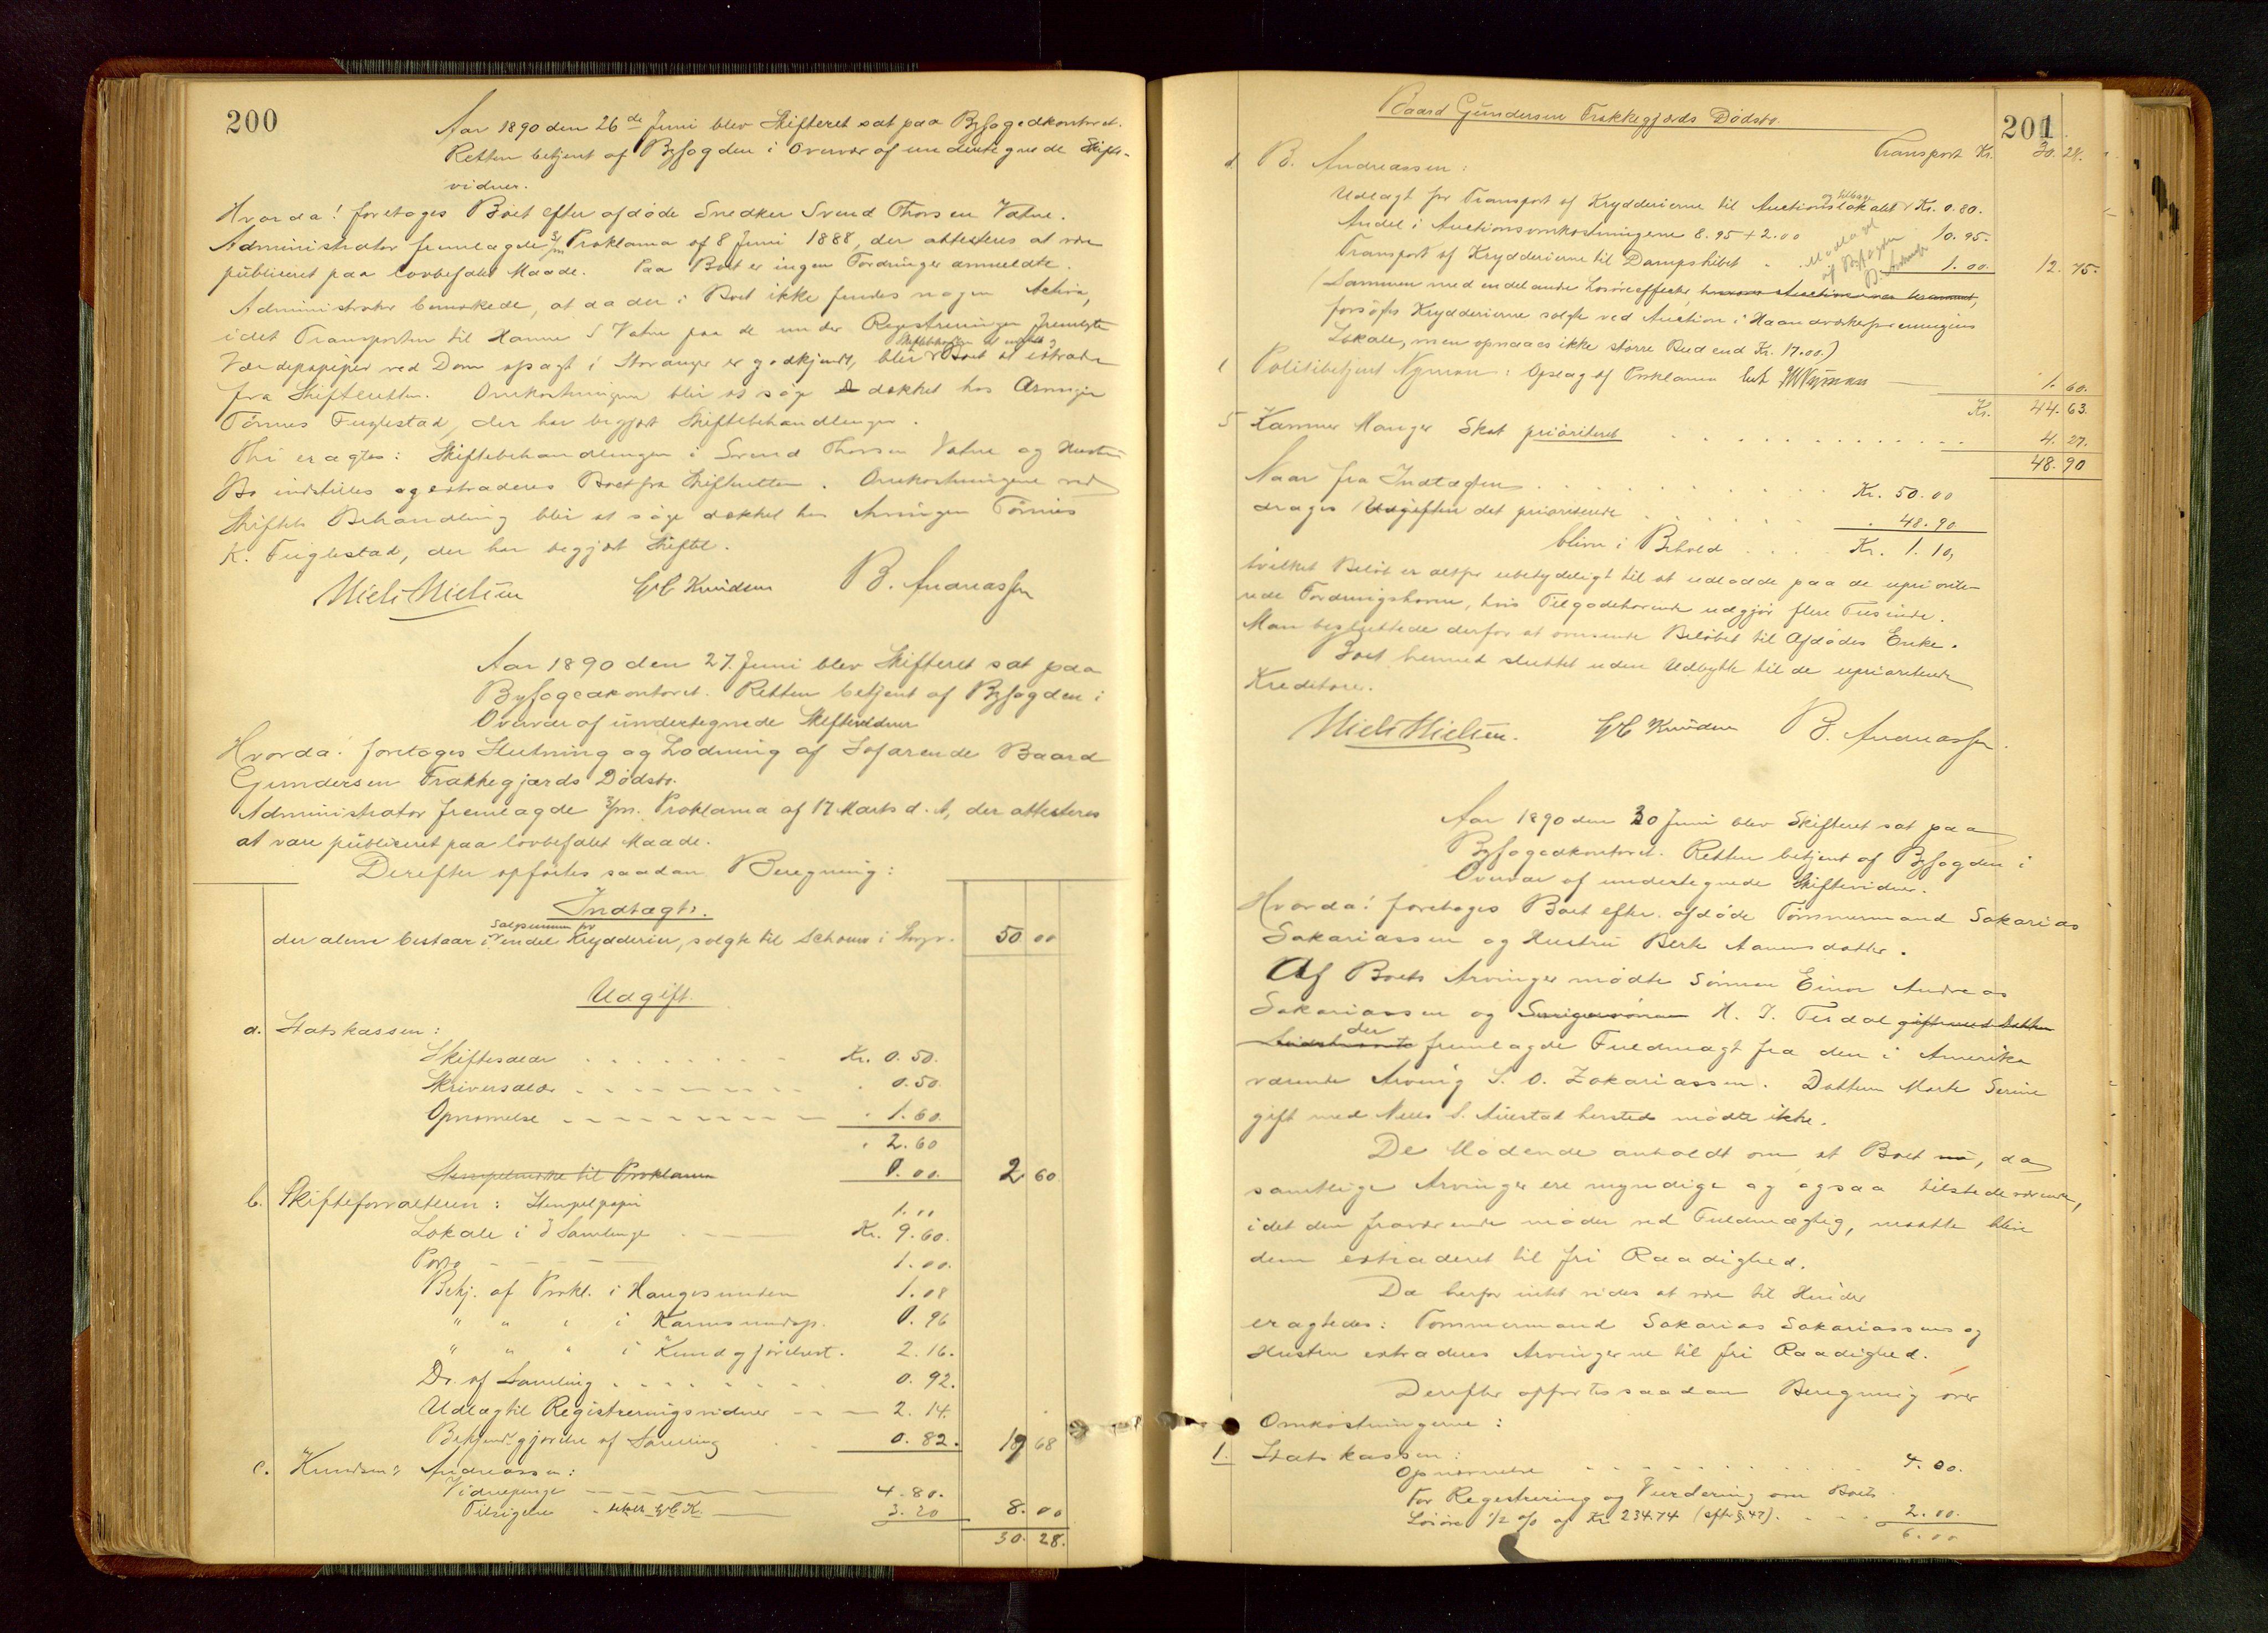 200
Aar 1890 den 26de Juni blev Skifteret sat paa Byfogedkontoret.
Retten betjent af Byfogden i Overvær af undertegnede Skifte-
vidner.
Hvorda! foretoges Boet efter afdøde Snedker Svend Thorsen Vatne.
Administrator fremlagde 3/m Proklama af 8 Juni 1888, der attesteres at være
publiceret paa lovbefalet Maade. Paa Boet er ingen Fordringer anmeldte.
Administrator bemærkede, at da der i Boet ikke findes nogen Activa,
idet Transporten til Hanne S Vatne paa de under Registreringen fremlagte
Værdipapirer ved Dom afsagt i Stavanger er godkjendt, blir Boet at extradere
fra Skifteretten. Omkostningerne blir at søge dækket hos Arvingen
Tönnes Fuglestad, der har begjært Skiftebehandlingen.
Thi eragtes: Skiftebehandlingen i Svend Thorsen Vatne og Hustru
Bo indstilles og extraderes Boet fra Skifteretten. Omkostningerne ved
Skiftets Behandling blir at søge dækket hos Arvingen Tönnes
K. Fuglestad, der har begjært Skiftet.
Niels Nielsen GC Knudsen B. Andreassen
Aar 1890 den 27. Juni blev Skifteret sat paa
Byfogedkontoret. Retten betjent af Byfogden i
Overvær af undertegnede Skiftevidner
Hvorda! foretoges Slutning og Lodning af Sofarende Baard
Gundersen Frakkegjærds Dødsbo.
Administrator fremlagde 3/m. Proklama af 17 Marts d. A, der attesteres
at være publiceret paa lovbefalet Maade.
Derefter opførtes saadan Beregning:
Indtægt.
Salgssummen for
der alene bestaar i en del Krydderier, solgte til Schous i Stvgr. 50 00
Udgift.
a. Statskassen:
Skiftesdaler Kr. 0.50.
Skriversdaler 0.50.
Opnævnelse 1.60.
2.60
Stempelmærke til Proklama 0.00. 2 60
b. Skifteforvalteren: Stempelpapir 1.00
Lokale i 3 Samlinger Kr. 9.60.
Porto 1.00.
Bekj. af Prokl. i Haugesunderen 1.08
" " " i Karmsundsp. 0.96
" " " i Kundgjörelsest. 2.16.
Do. af Samling 0.92.
Udlæg til Registreringsvidner 2.14.
Bekjendtgjørelse af Samling 0.82. 19 68
c. Knudsen & Andreassen:
Vidnepenge 4.80.
Tilsigelse 3.20 8.00
30.28.
Baard Gundersen Frakkegjærds Dødsbo.
201
Transport Kr. 30.28.
d. B. Andreassen:
og tilbage
Udlagt for Transport af Krydderierne til Auctionslokalet Kr. 0.80.
Andel i Auctionsomkostningerne 8.95 + 2.00 10.95.
Transport af Krydderierne til Dampskibet 1.00. 12.75.
(Sammen med en del andre Løsöreeffecter,
forsögtes Krydderierne solgte ved Auction i Haandverkerforeningens
Lokale, men opnaaes ikke större Bud end Kr. 17.00.)
e Politibetjent Nyman: Opslag af Proklama 1.60.
Kr. 44.63.
5 Kæmner Manger Skat prioriteret 4.27.
48.90
Naar fra Indtægten Kr. 50.00
drages Udgiften det prioriterede 48.90
blive i Behold Kr. 1.10,
hvilket Belöb er altfor ubetydeligt til at udlodde paa de upriorite-
rede Fordringshavere, hvis Tilgodehavende udgjör flere Tusinde.
Man besluttede derfor at oversende Belöbet til Afdödes Enke.
Boet hermed sluttet uden Udbytte til de uprioriterede
Kreditorer.
Niels Nielsen. GC Knudsen B. Andreassen.
Aar 1890 den 30 Juni blev Skifteret sat paa
Byfogedkontoret. Retten betjent af Byfogden i
Overvær af undertegnede Skiftevidner.
Hvorda! foretoges Boet efter afdöde Tömmermand Sakarias
Sakariassen og Hustru Berte Aanensdatter.
Af Boets Arvinger mødte Sönnen Einar Andreas
Sakariassen og Svigersönnen H. J. Tesdal gift med Datteren
der
fremlagde Fuldmagt fra den i Amerika
værende Arving S. O. Zakariassen. Datteren Marte Serine
gift med Neels S. Auestad hersteds mödte ikke.
De Mödende anholdt om at Boet nu, da
samtlige Arvinger ere myndige og ogsaa tilstedeværende,
idet den fraværende möder ved Fuldmægtig, maatte blive
dem extraderet til fri Raadighed.
Da herfor intet vides at være til Hinder
eragtedes: Tömmermand Sakarias Sakariassens og
Hustru extraderes Arvingerne til fri Raadighed.
Derefter opførtes saadan Beregning over
Omkostningerne:
1. Statskassen:
Opnævnelse 4.00.
For Registrering og Vurdering over Boets
Løsöre 1/2 o/o af Kr. 234.74 (efter § 47). 2.00.
6.00